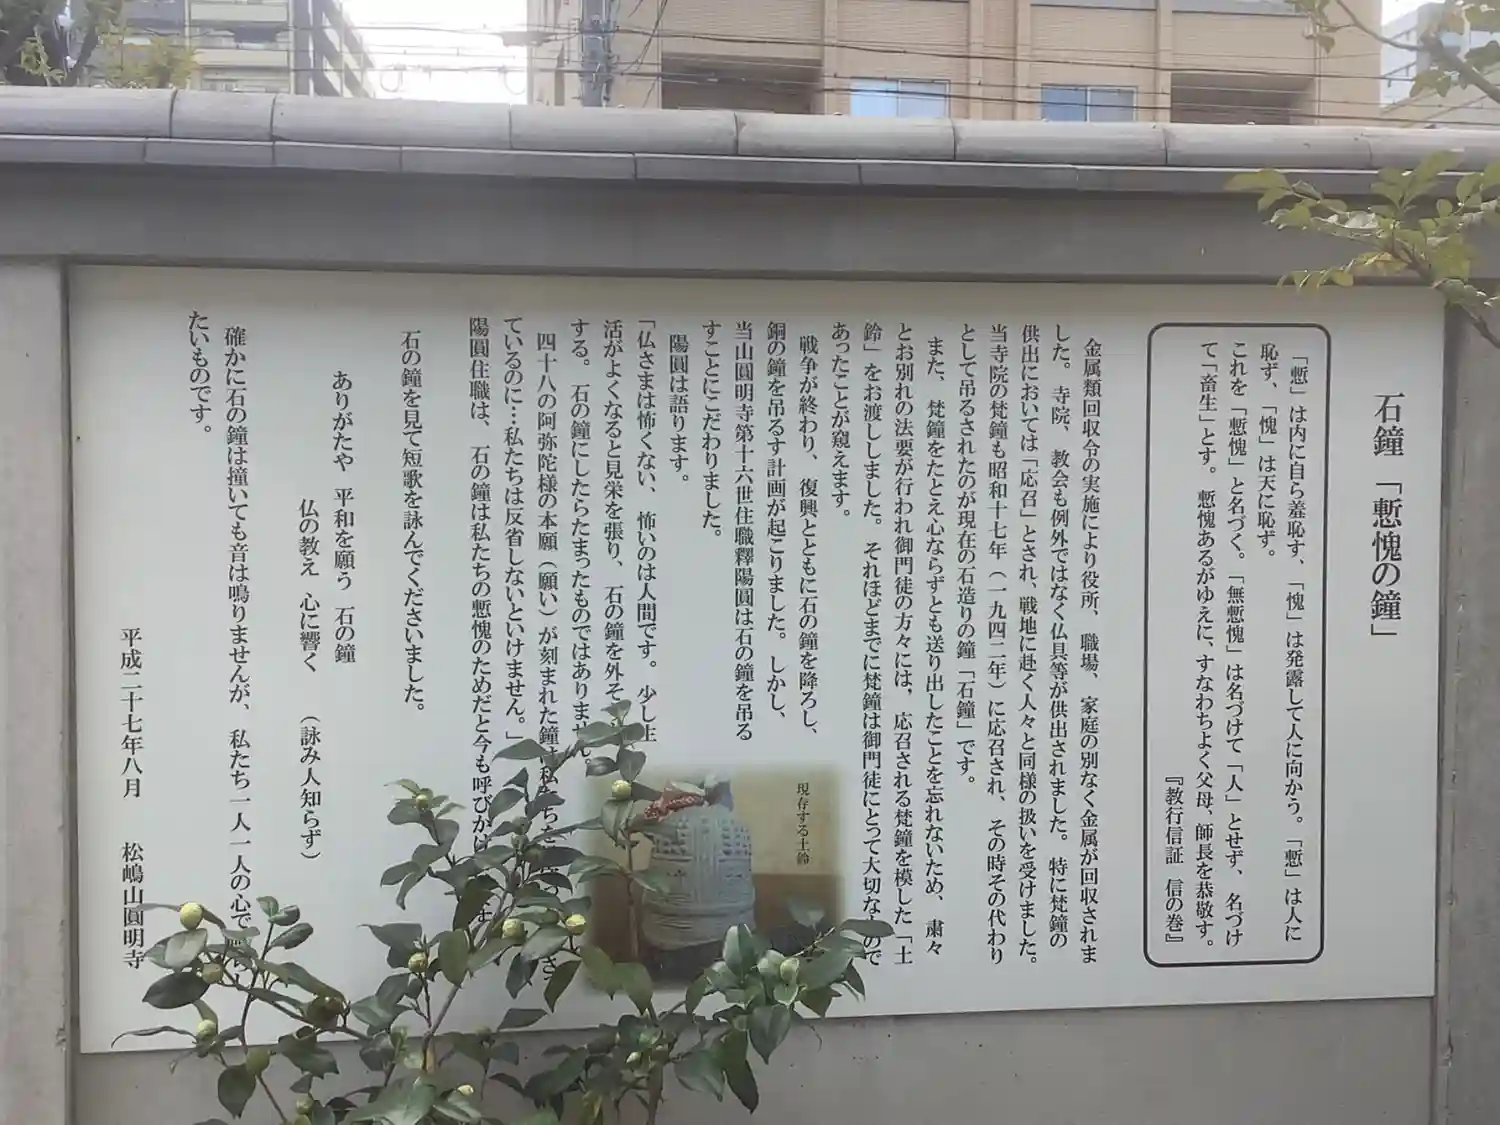 石鐘 「慙愧の鐘」
「慙」は内に自ら羞恥す、「愧」は発露して人に向かう。「慙」は人に
恥ず、「愧」は天に恥ず。
これを「慙愧」と名づく。「無慙愧」は名づけて「人」とせず、名づけ
て「畜生」とす。慙愧あるがゆえに、すなわちよく父母、師長を恭敬す。
『教行信証 信の巻』
金属類回収令の実施により役所、職場、家庭の別なく金属が回収されま
した。寺院、教会も例外ではなく仏具等が供出されました。特に梵鐘の
供出においては「応召」とされ、戦地に赴く人々と同様の扱いを受けました。
当寺院の梵鐘も昭和十七年（一九四二年）に応召され、その時その代わり
として吊るされたのが現在の石造りの鐘「石鐘」です。
また、梵鐘をたとえ心ならずとも送り出したことを忘れないため、粛々
とお別れの法要が行われ御門徒の方々には、応召される梵鐘を模した「土
鈴」をお渡ししました。それほどまでに梵鐘は御門徒にとって大切なもので
あったことが窺えます。
戦争が終わり、復興とともに石の鐘を降ろし、
銅の鐘を吊るす計画が起こりました。しかし、
当山圓明寺第十六世住職釋陽圓は石の鐘を吊る
すことにこだわりました。
陽圓は語ります。
「仏さまは怖くない、怖いのは人間です。少し生
活がよくなると見栄を張り、石の鐘を外そ
する。石の鐘にしたらたまったものではありません。
四十八の阿弥陀様の本願（願い）が刻まれた鐘は私たちを
ているのに…私たちは反省しないといけません。」
陽圓住職は、石の鐘は私たちの慙愧のためだと今も呼びか
石の鐘を見て短歌を詠んでくださいました。
ありがたや 平和を願う 石の鐘
仏の教え 心に響く （詠み人知らず）
確かに石の鐘は撞いても音は鳴りませんが、私たち一人一人の心で
たいものです。
平成二十七年八月 松嶋山圓明寺
現存する土鈴